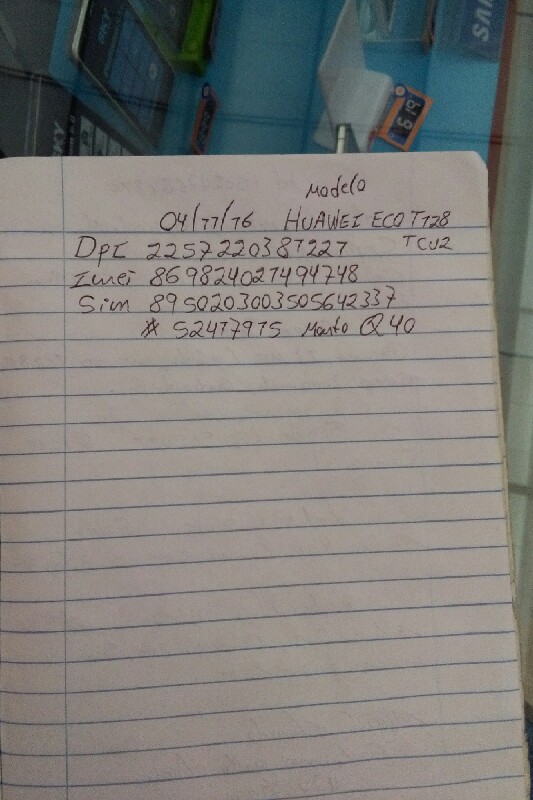 SKY
SAMS
SKY
Modelo
04/11/16 HUAWEI ECO T128
DpI 2257220381227 TCU2
Imei 869824021494748
Sim 8950203003505642337
# 52417915 Monto Q40